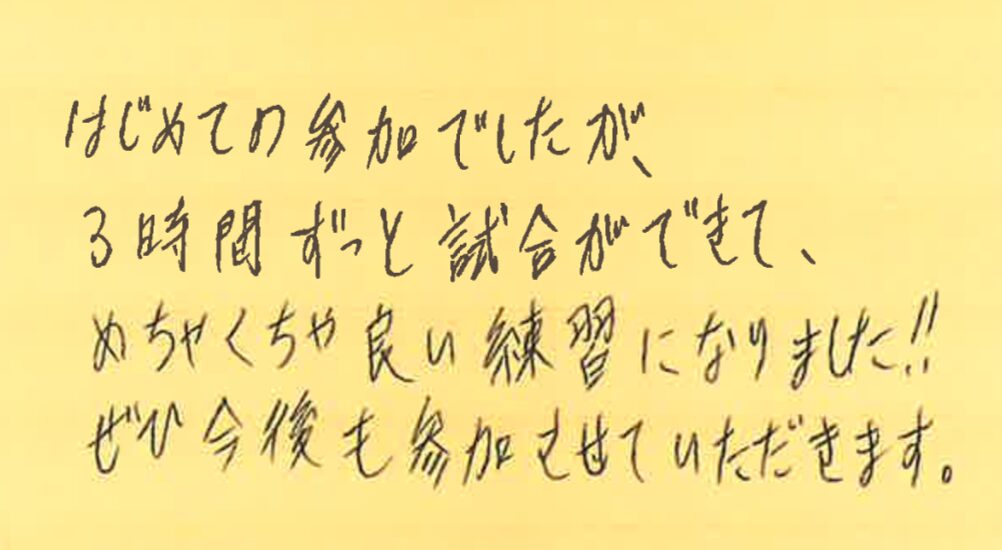 はじめての参加でしたが、
3時間ずっと試合ができて、
めちゃくちゃ良い練習になりました!!
ぜひ今後も参加させていただきます。